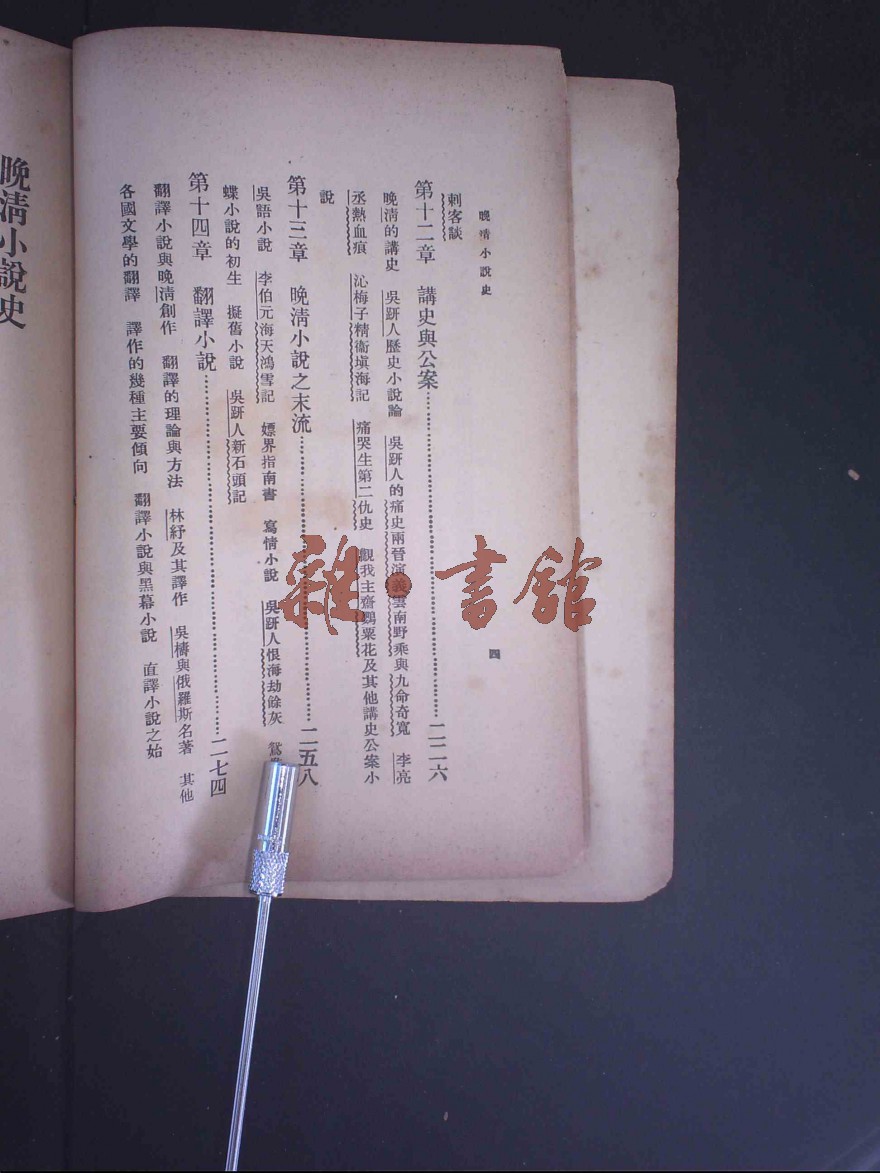 晚清小說史
四
刺客談
第十二章　講史與公案…………二二六
晚清的講史　吳趼人歷史小說論　吳趼人的痛史兩晉演義雲南野乘與九命奇寃　李亮
丞熱血痕　沁梅子精衞塡海記　痛哭生第二仇史　觀我主齋鸎粟花及其他講史公案小
說
第十三章　晚清小說之末流…………二五八
吳語小說　李伯元海天鴻雪記　嫖界指南書　寫情小說　吳趼人恨海劫餘灰　鴛
蝶小說的初生　擬舊小說　吳趼人新石頭記
第十四章　翻譯小說…………二七四
翻譯小說與晚清創作　翻譯的理論與方法　林紓及其譯作　吳檮與俄羅斯名著　其他
各國文學的翻譯　譯作的幾種主要傾向　翻譯小說與黑幕小說　直譯小說之始
晚清小說史
雜書館